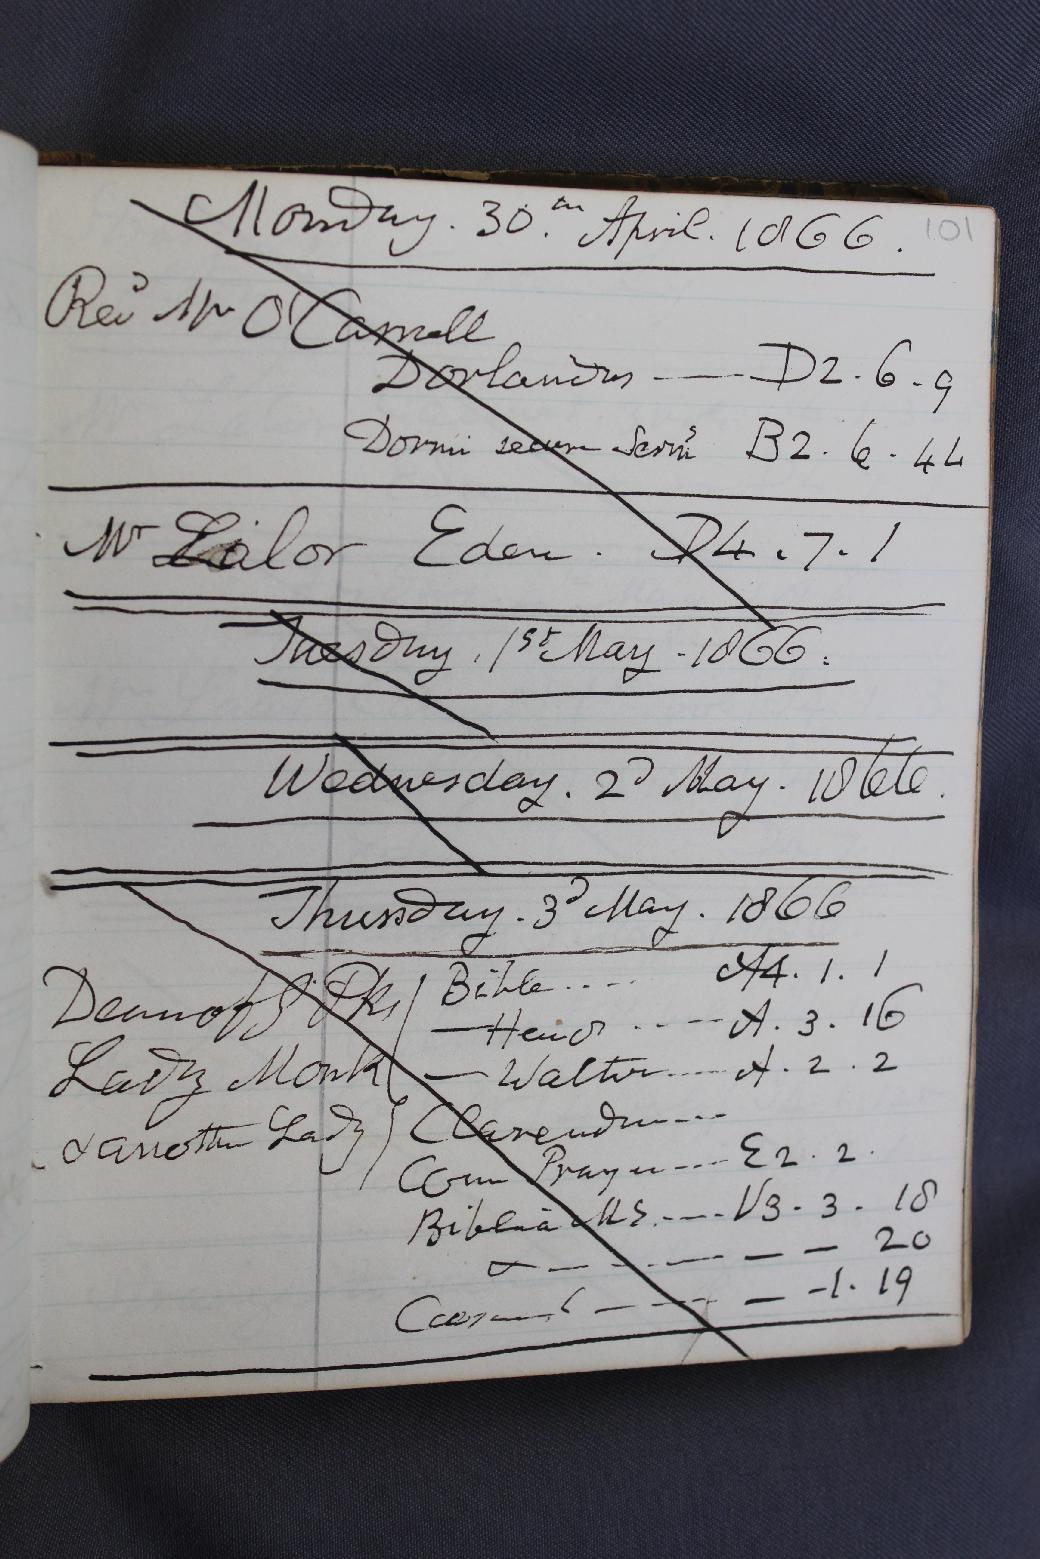 Monday. 30th. April. 1866.
101
Revd Mr O'Carroll
Dorlandus — D2. 6. 9
Dormi secure Serms B2. 6. 44
Mr Lalor Eden. D4. 7. 1
Tuesday. 1st May. 1866.
Wednesday. 2d May. 1866.
Thursday. 3d May. 1866
Dean of St Pks Bible.... A4. 1. 1
— .... A. 3. 16
Lady Monk — Walton.... A. 2. 2
& another Lady Clarendon....
Com Prayer.... E2. 2.
Biblia MS..... V3. 3. 18
& — — — — 20
— — — -1. 19